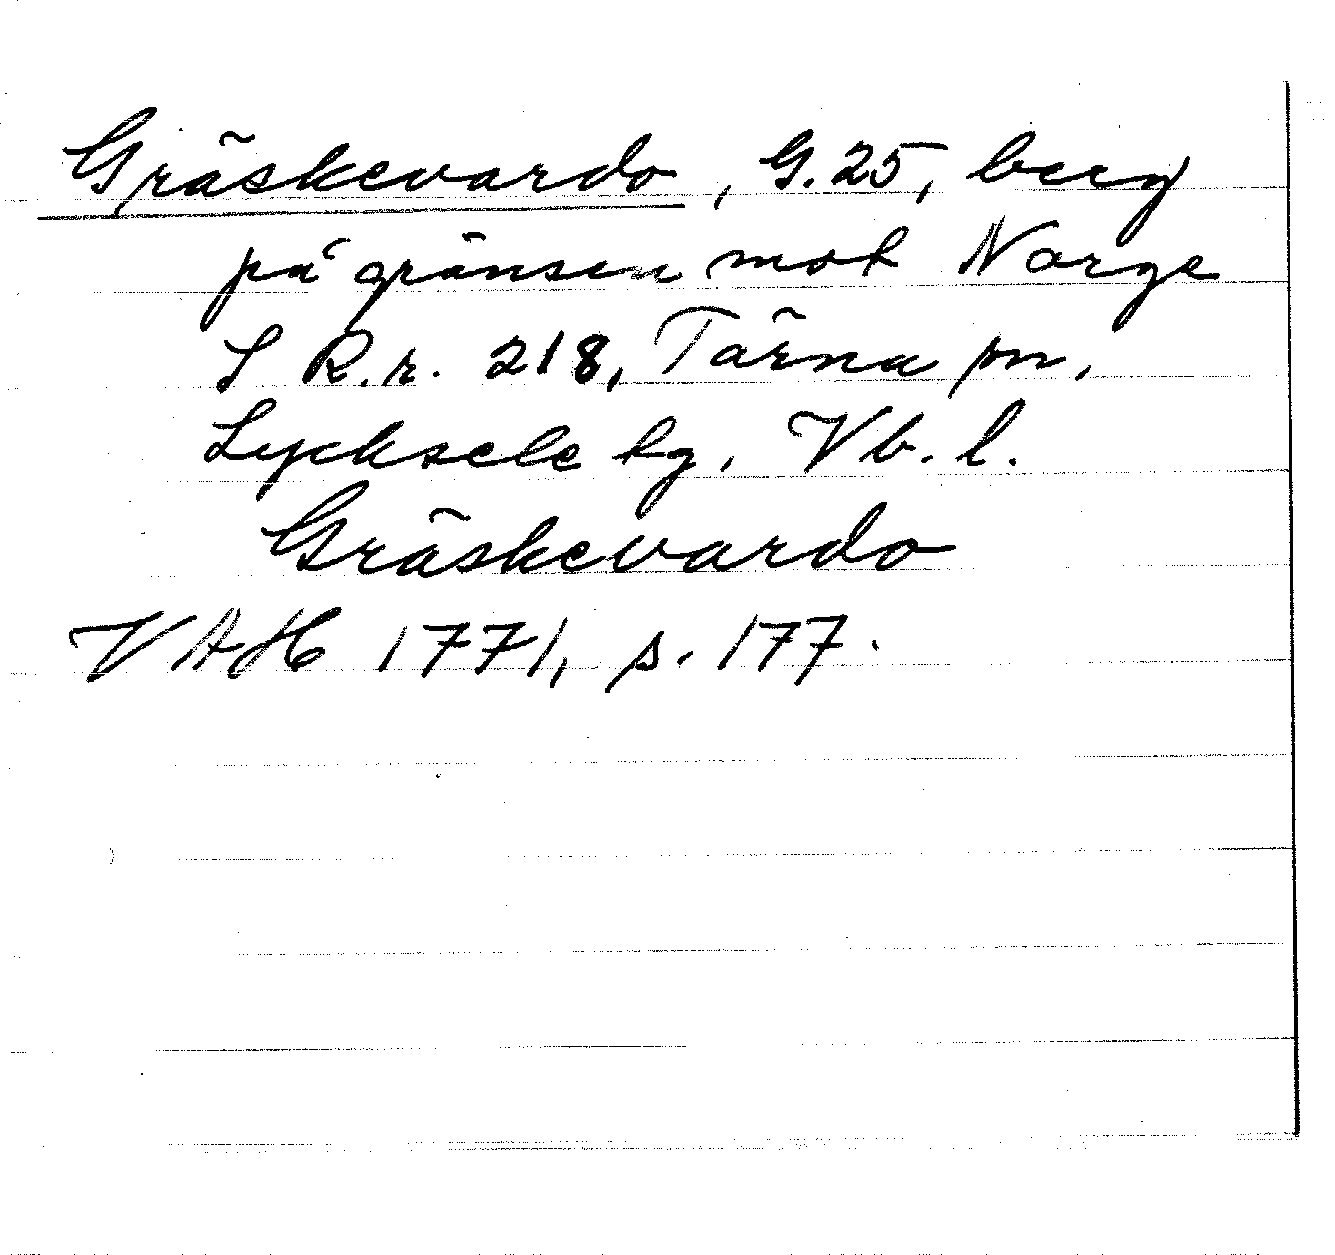 Gräskevardo, G.25, berg
på gränsen mot Norge
S R.r. 218, Tärna sn,
Lycksele tg. Vb. l.
Gräskevardo
VAH 1771, s. 177.